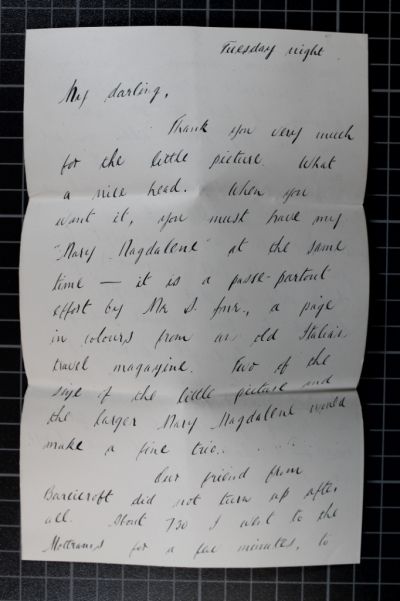 Tuesday night
My darling,
Thank you very much
for the little picture. What
a nice head. When you
want it, you must have my
"Mary Magdalene" at the same
time — it is a passe-partout
effort by Mr S. a page
in colours from an old Italian
travel magazine. Two of the
size of the little picture and
the larger Mary Magdalene would
make a fine trio.
Our friend from
Barcicroft did not turn up after
all. About 730 I went to the
Mottrams for a few minutes, to